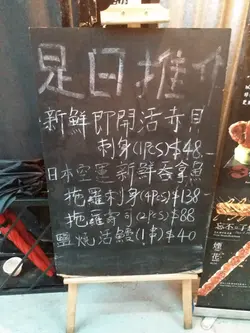 是日推介
新鮮即開活赤貝
刺身(1PCS)$48
日本空運新鮮吞拿魚
拖羅刺身(4PCS)$138
拖羅壽司(2PCS)$88
鹽燒活鰻(1串)$40